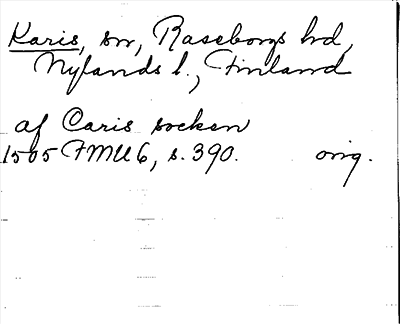 Karis, sn, Raseborgs hd,
Nylands l., Finland
af Caris socken
1505 FMU 6, s. 390. orig.